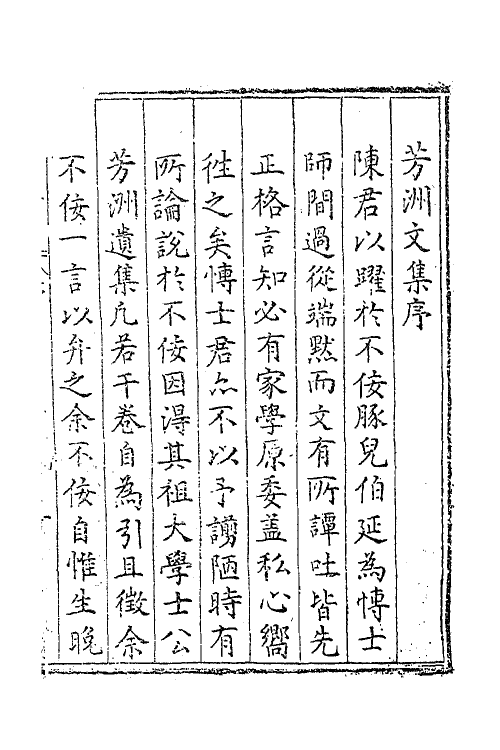 芳洲文集序
陳君以躍於不佞豚兒伯延為博士
師間過從端默而文有所譚吐皆先
正格言知必有家學原委盖私心嚮
徃之矣博士君亦不以予謭陋時有
所論說於不佞因淂其祖大學士公
芳洲遺集凡若干卷自為引且徵余
不佞一言以弁之余不佞自惟生晚